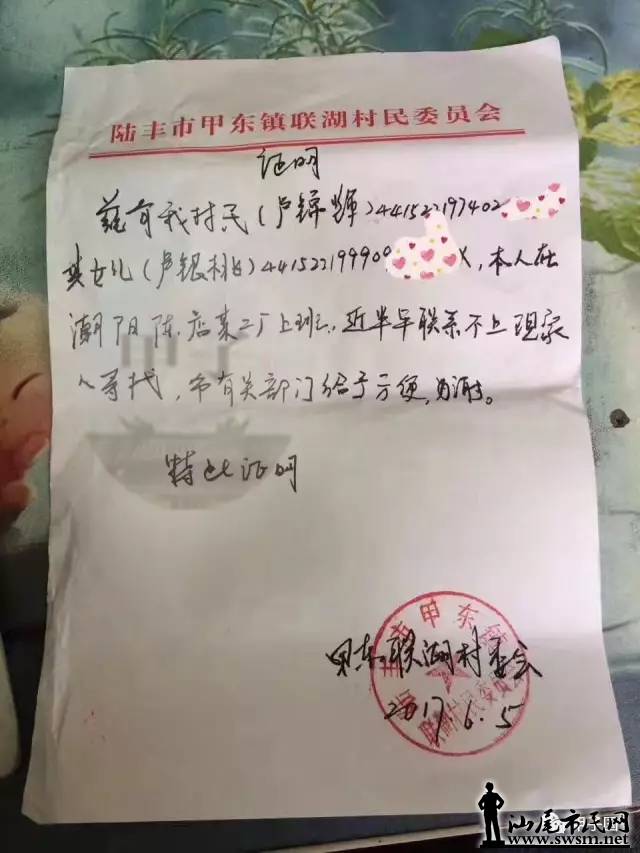 陆丰市甲东镇联湖村民委员会
证明
兹有我村民(卢锦辉)441522197402
其女儿(卢银桃)44152219990 X,本人在
潮阳陈店某工厂上班,近半年联系不上现家
人寻找,希有关部门给予方便,为谢。
特此证明
甲东联湖村委会
2017.6.5
汕尾市民网
www.swsm.net